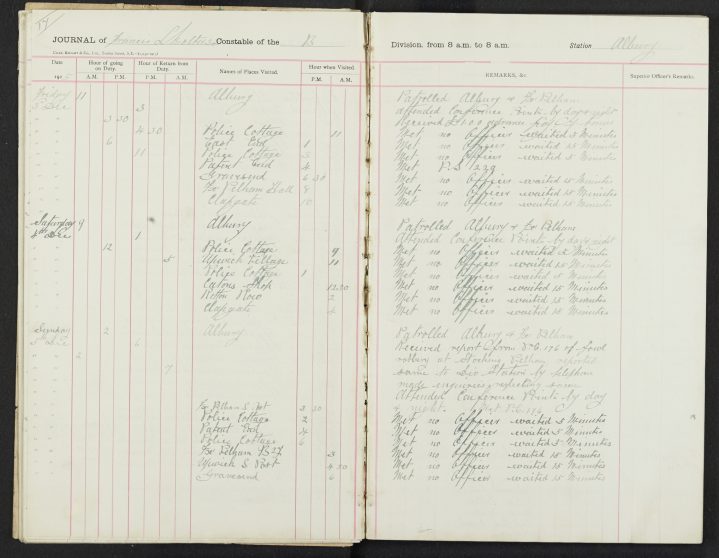 JOURNAL of Francis Constable of the B
Division, from 8 a.m. to 8 a.m. Station Albury
Date Hour of going on Duty. Hour of Return from Duty. Names of Places Visited. Hour when Visited.
A.M. P.M. P.M. A.M. P.M. A.M.
REMARKS, &c. Superior Officer's Remarks.
Friday 11 Albury Patrolled Albury & Fx Pelham
3 Dec 3 attended Conference Points by day & night
3 30 Received
4 30 Police Cottage 11 Met no Officer waited 5 Minutes
6 East End 1 Met no Officer waited 15 Minutes
11 Police Cottage 3 Met no Officer waited 5 Minutes
Patient End 4 Met P.S. 229
Gravesend 6 30 Met no Officer waited 15 Minutes
Fx Pelham Hall 8 Met no Officer waited 15 Minutes
Clapgate 10 Met no Officer waited 15 Minutes
Saturday 9 Albury Patrolled Albury & Fx Pelham
4th Dec 1 Attended Conference Points by day & night
12 Police Cottage 9 Met no Officer waited 5 Minutes
5 Upwick Village 11 Met no Officer waited 15 Minutes
Police Cottage 1 Met no Officer waited 5 Minutes
Shop 12 30 Met no Officer waited 15 Minutes
Row 2 Met no Officer waited 15 Minutes
Clapgate 4 Met no Officer waited 15 Minutes
Sunday 2 Albury Patrolled Albury & Fx Pelham
5th Dec 6 Received report from P.C. 176 of fowl
2 robbery at Stocking Pelham reported
same to Div Station by telephone
7 made inquiries respecting same
Attended Conference Points by day
& night. Met P.C.
Fx Pelham S. Post 3 30
Police Cottage 2 Met no Officer waited 5 Minutes
Patient End 4 Met no Officer waited 15 Minutes
Police Cottage 6 Met no Officer waited 5 Minutes
Fx Pelham 3 Met no Officer waited 15 Minutes
Upwick S. Post 4 30 Met no Officer waited 15 Minutes
Gravesend 6 Met no Officer waited 15 Minutes